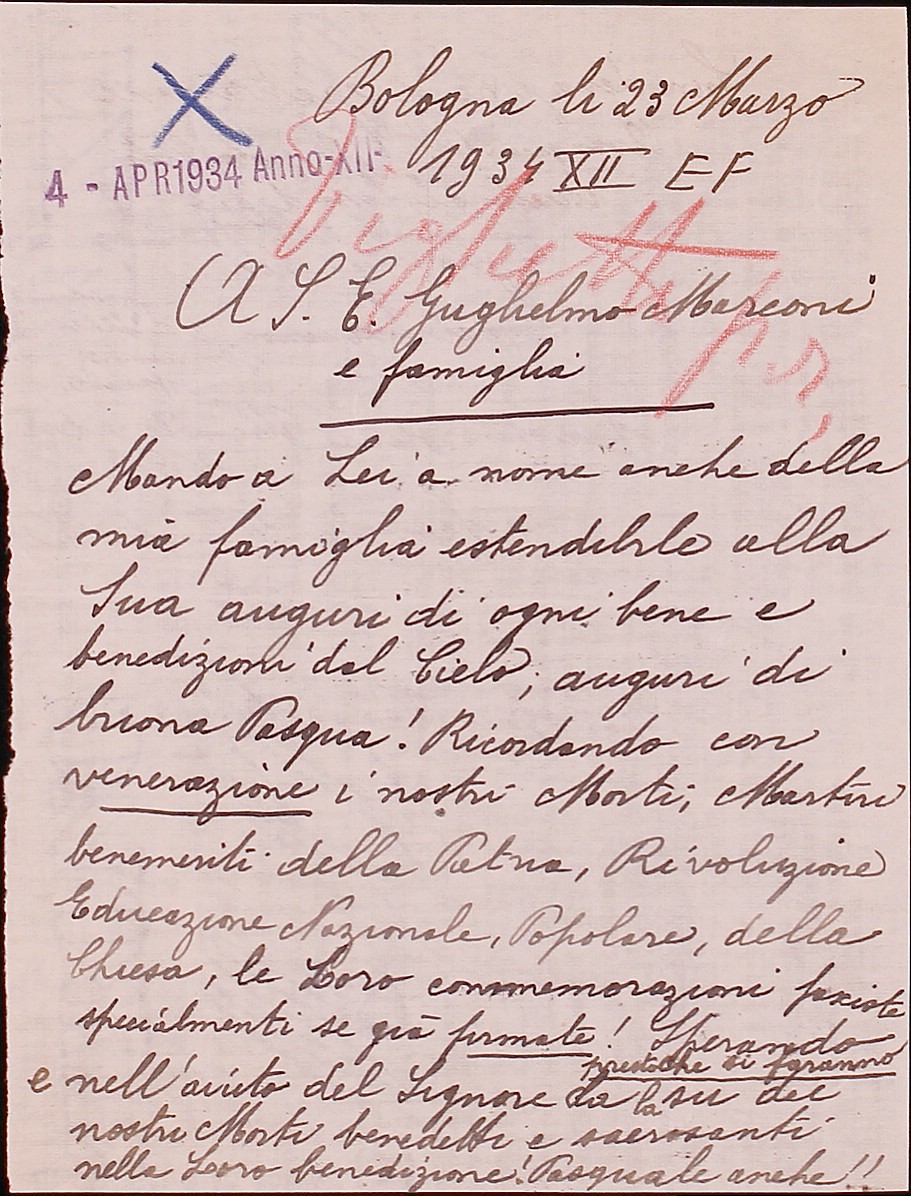 Bologna li 23 Marzo
4 - APR 1934 Anno-XII-
1934 XII E F
Biglietto p. r.
A S. E. Guglielmo Marconi
e famiglia
Mando a Lei a nome anche della
mia famiglia estendibile alla
Sua auguri di ogni bene e
benedizioni dal Cielo, auguri di
buona Pasqua! Ricordando con
venerazione i nostri Morti, Martiri
benemeriti della Patria, Rivoluzione
Educazione Nazionale, Popolare, della
Chiesa, le Loro commemorazioni fasciste
specialmenti se già firmate! Sperando
presto che si faranno
e nell'aiuto del Signore da la su dei
nostri Morti benedetti e sacrosanti
nella Loro benedizione! Pasquale anche!!